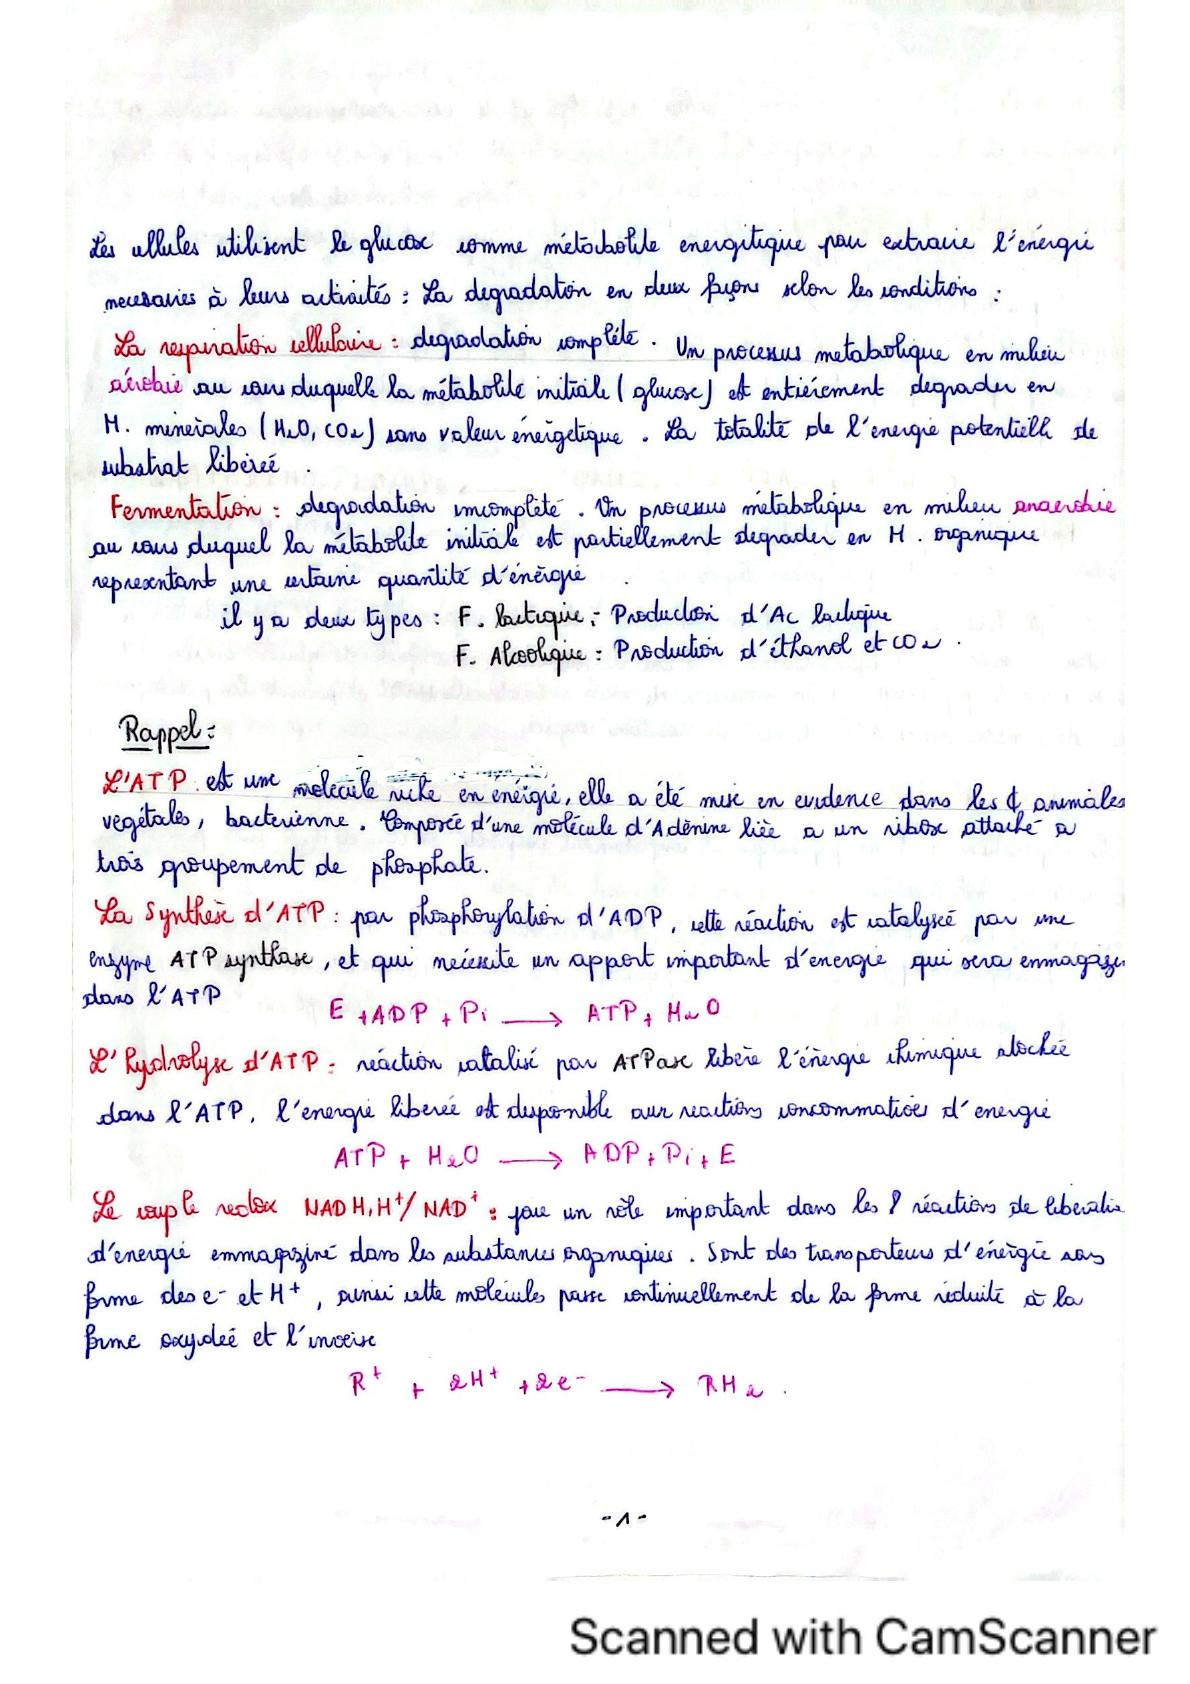 Les cellules utilisent le glucose comme métabolite energitique pour extraire l'énérgie
necessaries à leurs activités : La degradation en deux façons selon les conditions :
La respiration cellulaire : degradation compléte . Un processus metabolique en milieu
aérobie au cours duquelle la métabolite initiale (glucose) est entiérement degrader en
M. minerales (H2O, CO2) sans valeur énergetique . La totalité de l'energie potentielle de
substrat libéreé .
Fermentation : degradation imcompléte . Un processus métabolique en milieu anaerobie
au cours duquel la métabolite initiale est partiellement degrader en M . organique
represntant une certaine quantité d'énérgie .
il y a deux types : F. lactique : Production d'Ac lactique
F. Alcoolique : Production d'éthanol et CO2 .
Rappel :
L'ATP est une molécule riche en énérgie, elle a été mise en evidence dans les ¢ animales
végétales, bacterienne . Composée d'une molécule d'Adénine liée a un ribose attaché a
trois groupement de phosphate.
La Synthèse d'ATP : par phosphorylation d'ADP, cette réaction est catalyseé par une
enzyme ATP synthase, et qui nécéssite un apport important d'energie qui sera emmagazi
dans l'ATP
E + ADP + Pi ⟶ ATP + H2O
L'hydrolyse d'ATP : réaction catalisé par ATPase libère l'énergie chimique stockeé
dans l'ATP, l'energie libereé est disponible aux reactions concommatices d'energie
ATP + H2O ⟶ ADP + Pi + E
Le couple redox NADH,H+/NAD+ : joue un rôle important dans les réactions de liberatio
d'energie emmagaziné dans les substances organiques . Sont des transporteurs d'énérgie sous
forme des e- et H+ , ainsi cette molécules passe continuellement de la forme réduite à la
forme oxydeé et l'inverse
R+ + 2H+ + 2e- ⟶ RH2 .
-1-
Scanned with CamScanner